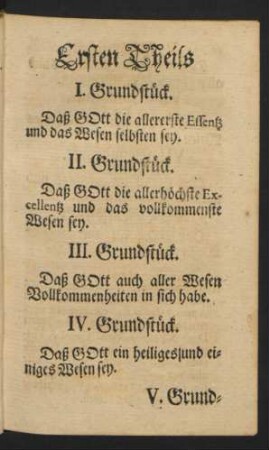 Ersten Theils
I. Grundstück.
Daß GOtt die allererste Essentz
und das Wesen selbsten sey.
II. Grundstück.
Daß GOtt die allerhöchste Ex-
cellentz und das vollkommenste
Wesen sey.
III. Grundstück.
Daß GOtt auch aller Wesen
Vollkommenheiten in sich habe.
IV. Grundstück.
Daß GOtt ein heiliges/und ei-
niges Wesen sey.
V. Grund-